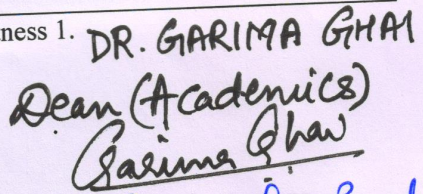 ness 1. DR. GARIMA GHAI
Dean (Academics)
Garima Ghai